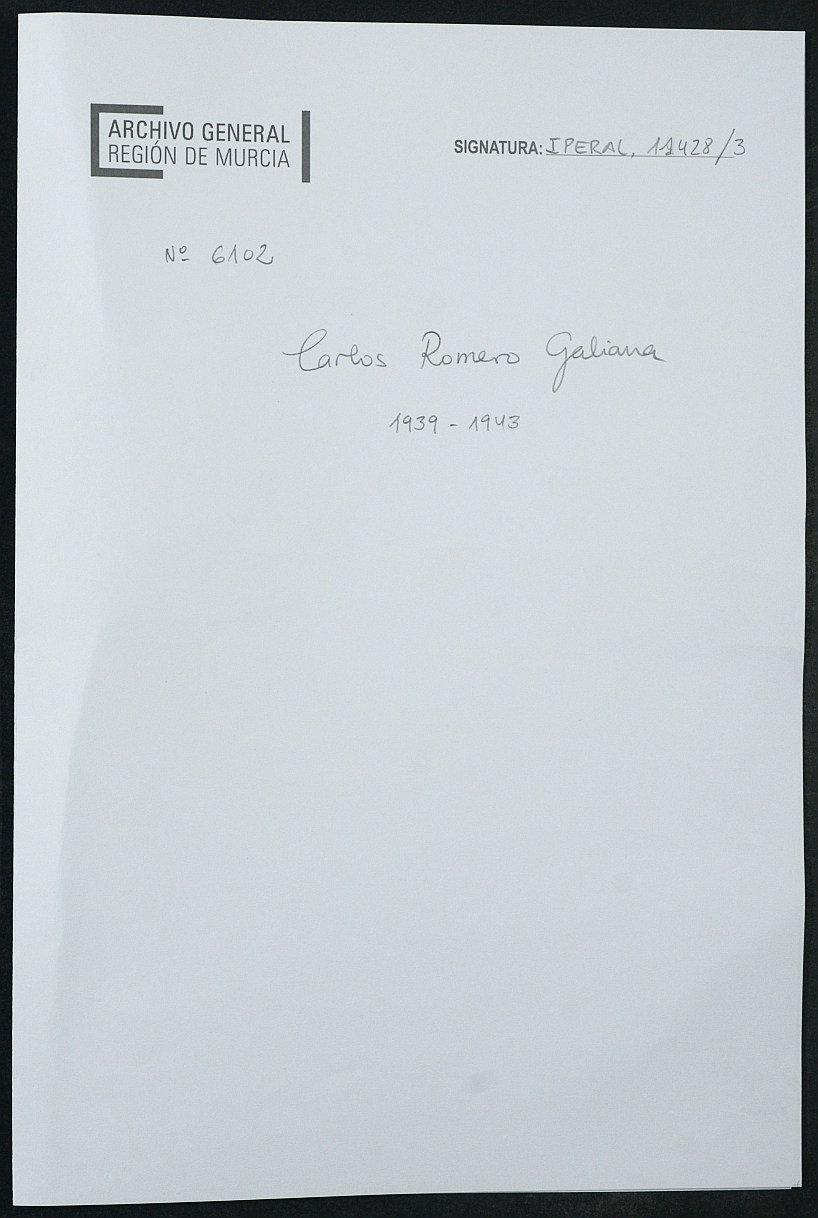 ARCHIVO GENERAL
REGIÓN DE MURCIA
SIGNATURA: IPERAL, 11428/3
Nº 6102
Carlos Romero Galiana
1939 - 1943